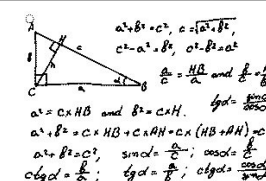 A
H
c
b
C
a
α
B
a²+b²=c², c=√a²+b²,
c²-a²=b², c²-b²=a²
a/c = HB/a and b/c =
tgα = sinα/cosα
a² = c×HB and b² = c×H.
a²+b² = c×HB + c×AH = c×(HB+AH) =c
a²+b²=c², sinα = a/c; cosα = b/c
ctgα = b/a; tgα = a/b; ctgα = cosα/sinα